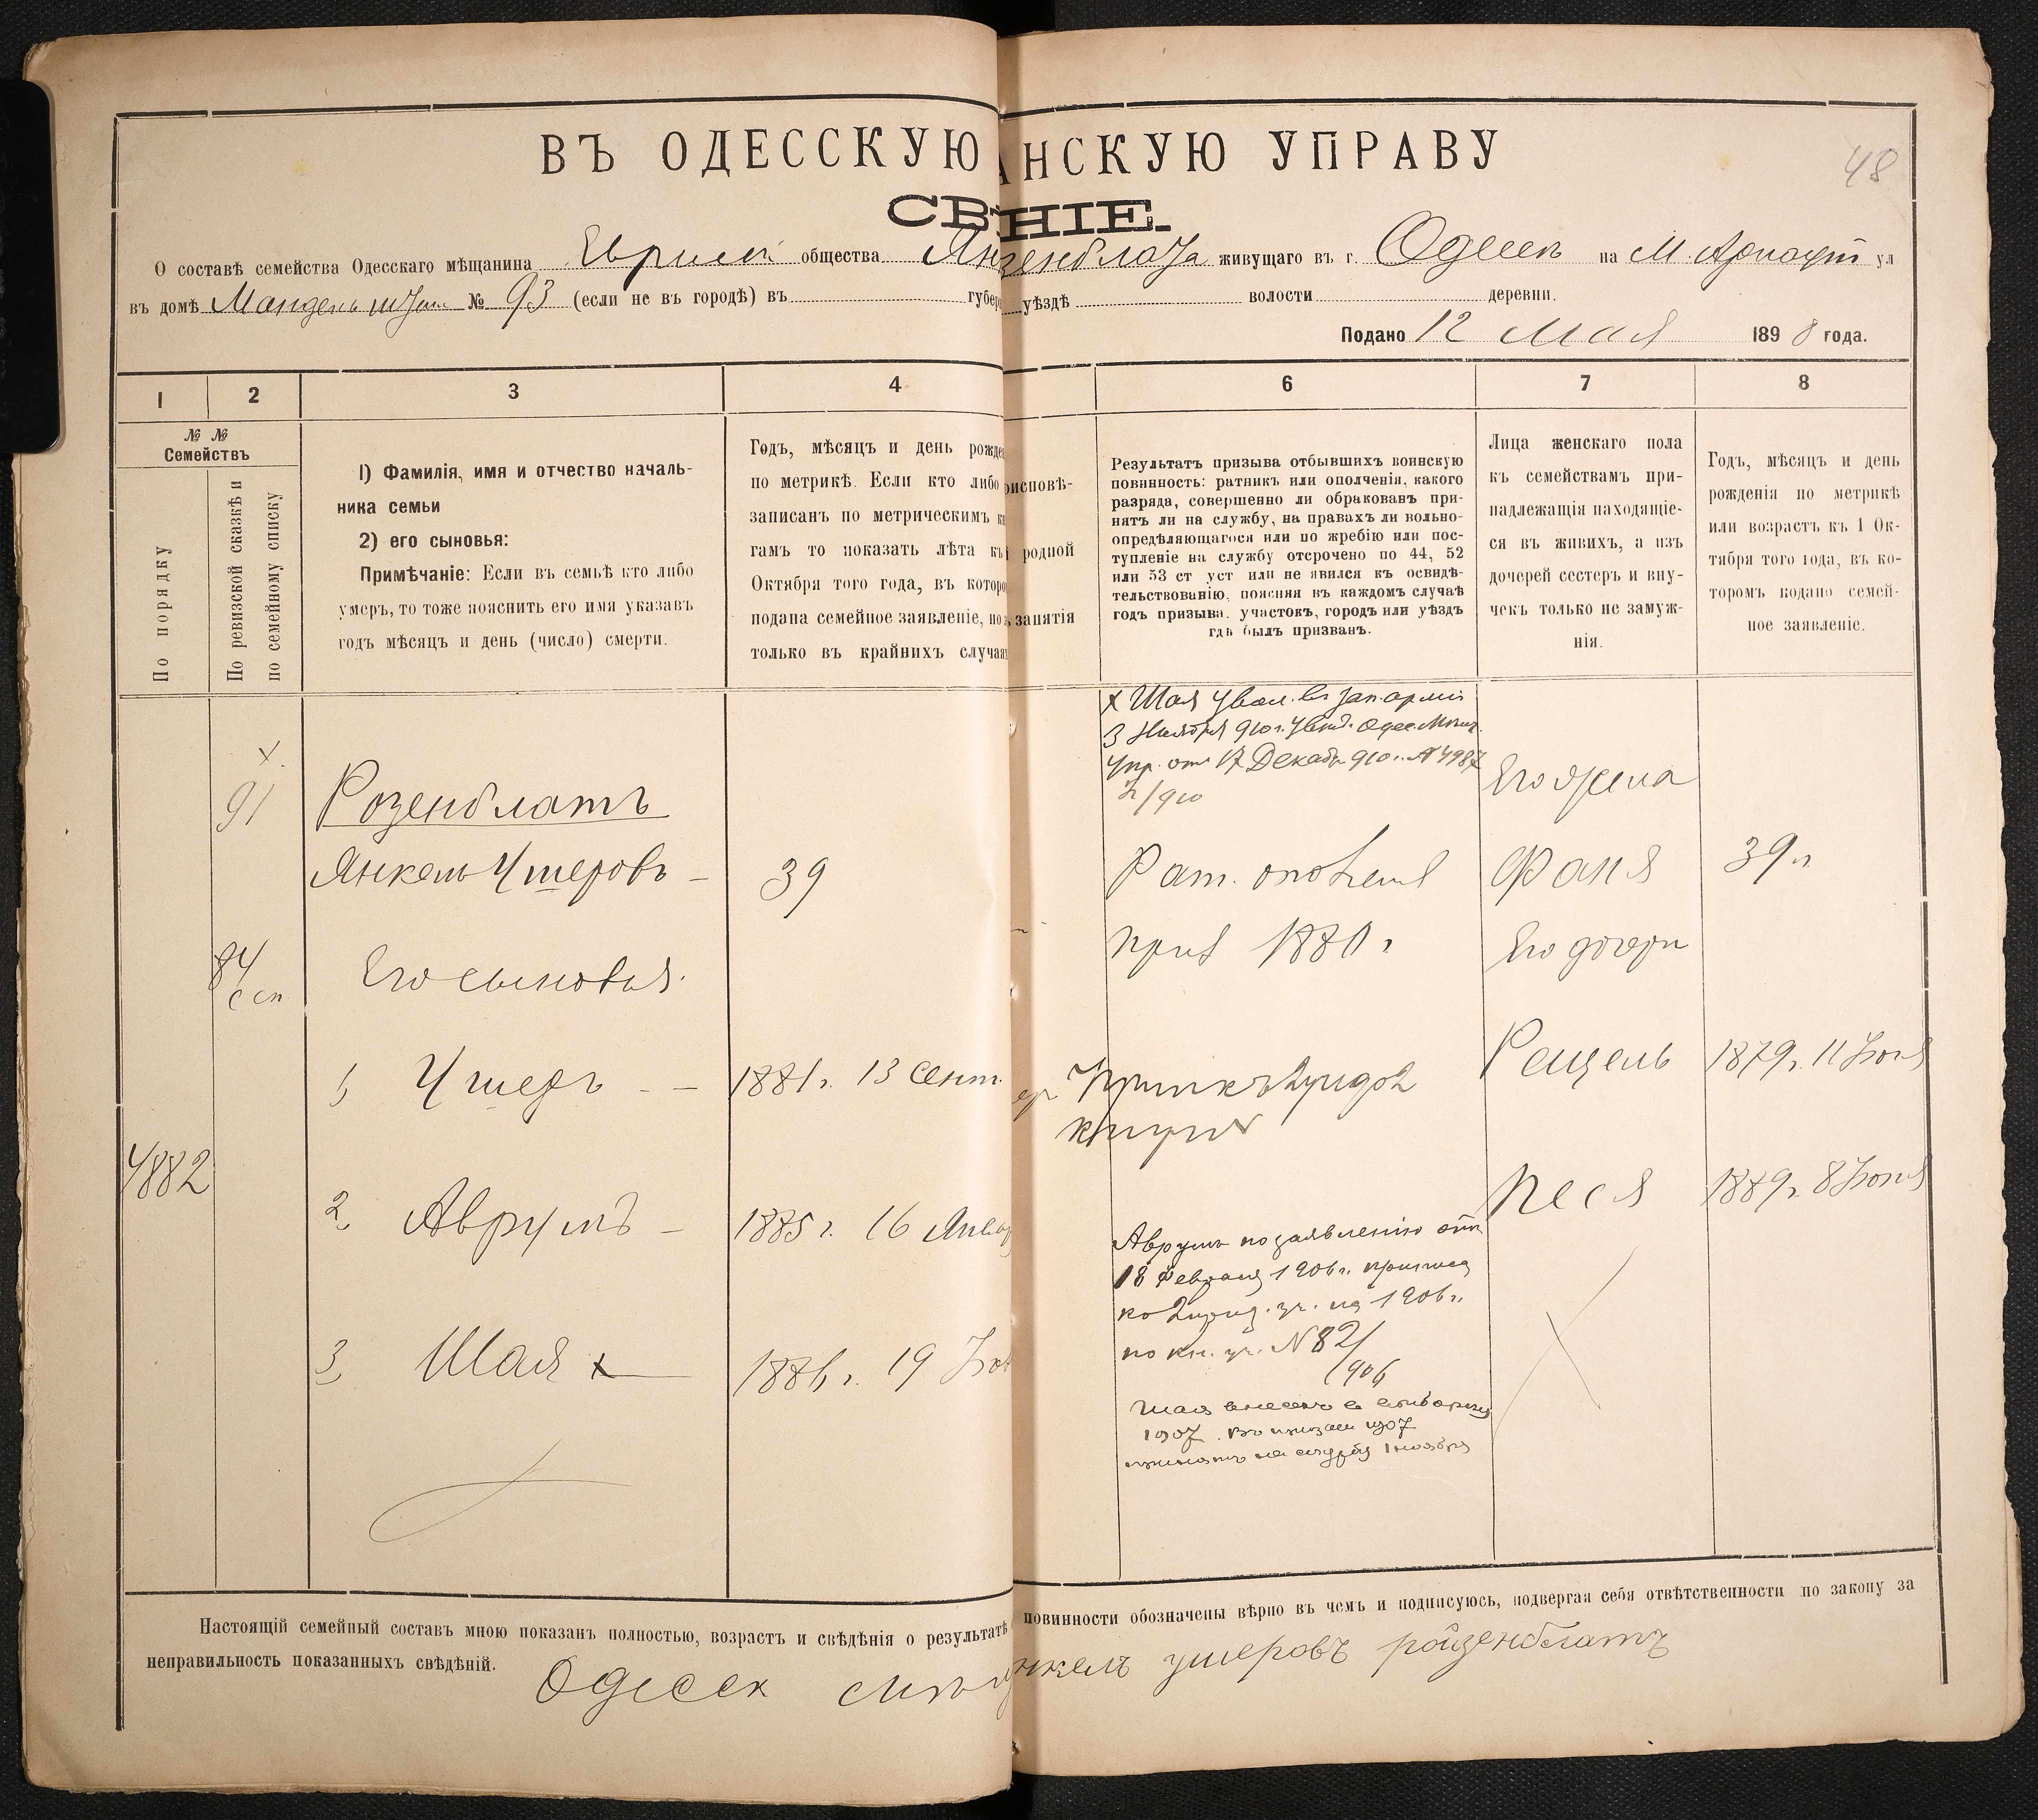 ВЪ ОДЕССКУЮ АНСКУЮ УПРАВУ
48
СВѢНІЕ.
О составѣ семейства Одесскаго мѣщанина общества живущаго въ г. Одессѣ на М. Арнаут ул
въ домѣ № 93 (если не въ городѣ) въ губер уѣздѣ волости деревни.
Подано 12 Мая 1898 года.
1 2 3 4 6 7 8
№ №
Семействъ
По порядку
По ревизской сказкѣ и
по семейному списку
1) Фамилія, имя и отчество началь-
ника семьи
2) его сыновья:
Примѣчаніе: Если въ семьѣ кто либо
умеръ, то тоже пояснить его имя указавъ
годъ мѣсяцъ и день (число) смерти.
Годъ, мѣсяцъ и день рожде
по метрикѣ. Если кто либо
записанъ по метрическимъ к
гамъ то показать лѣта къ
Октября того года, въ которо
подана семейное заявленіе, но
только въ крайнихъ случая
рисповѣ-
родной
занятія
Результатъ призыва отбывшихъ воинскую
повинность: ратникъ или ополченія, какого
разряда, совершенно ли обракованъ при-
нятъ ли на службу, на правахъ ли вольно-
опредѣляющагося или по жребію или пос-
тупленіе на службу отсрочено по 44, 52
или 53 ст уст или не явился къ освидѣ-
тельствованію, поясняя въ каждомъ случаѣ
годъ призыва, участокъ, городъ или уѣздъ
гдѣ былъ призванъ.
Лица женскаго пола
къ семействамъ при-
надлежащія находящіе-
ся въ живихъ, а изъ
дочерей сестеръ и вну-
чекъ только не замуж-
нія.
Годъ, мѣсяцъ и день
рожденія по метрикѣ
или возрастъ къ 1 Ок-
тября того года, въ ко-
торомъ подано семей-
ное заявленіе.
х Шая увол. въ зап. арміи
3 Ноября 910 г. Увѣд. Одес. Мѣщ.
Упр. от 17 Декаб. 910 г. № 4987
х
91
Розенблатъ
Его жена
Янкель Ушеровъ – 39
Рат. ополчения
Фаня 39 л
84
с сп
Его сыновья.
приз 1880 г
Его дочери
1 Ушеръ – – 1881 г. 13 Сент.
Рещель 1879 г. 11 Июня
4882
2 Аврумъ – 1885 г. 16 Январ
Песя 1889 г. 8 Июня
Аврумъ по заявленію отъ
18 Февраля 1906 г. припис
ко 2 приз. уч. на 1906 г.
по кн. уч. № 82/
906
3 Шая х 1886 г. 19
Шая внесенъ в
1907. Въ призыв 1907
принятъ на службу 1 ноября
Настоящій семейный составъ мною показанъ полностью, возрастъ и свѣдѣнія о результатѣ повинности обозначены вѣрно въ чемъ и подписуюсь, подвергая себя отвѣтственности по закону за
неправильность показанныхъ свѣдѣній.
Одесск нкель ушеровъ ройзенблатъ